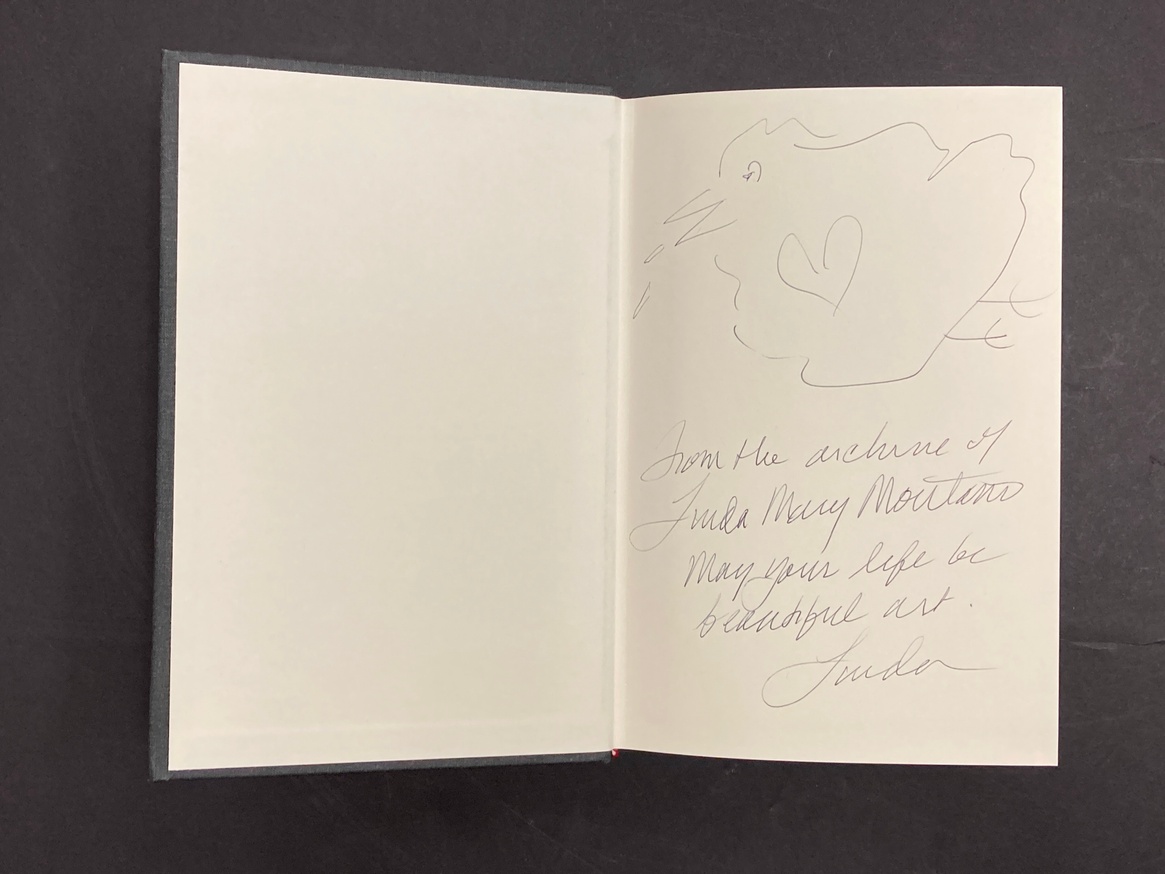 from the archive of
Linda Mary Montano
May your life be
beautiful art.
Linda